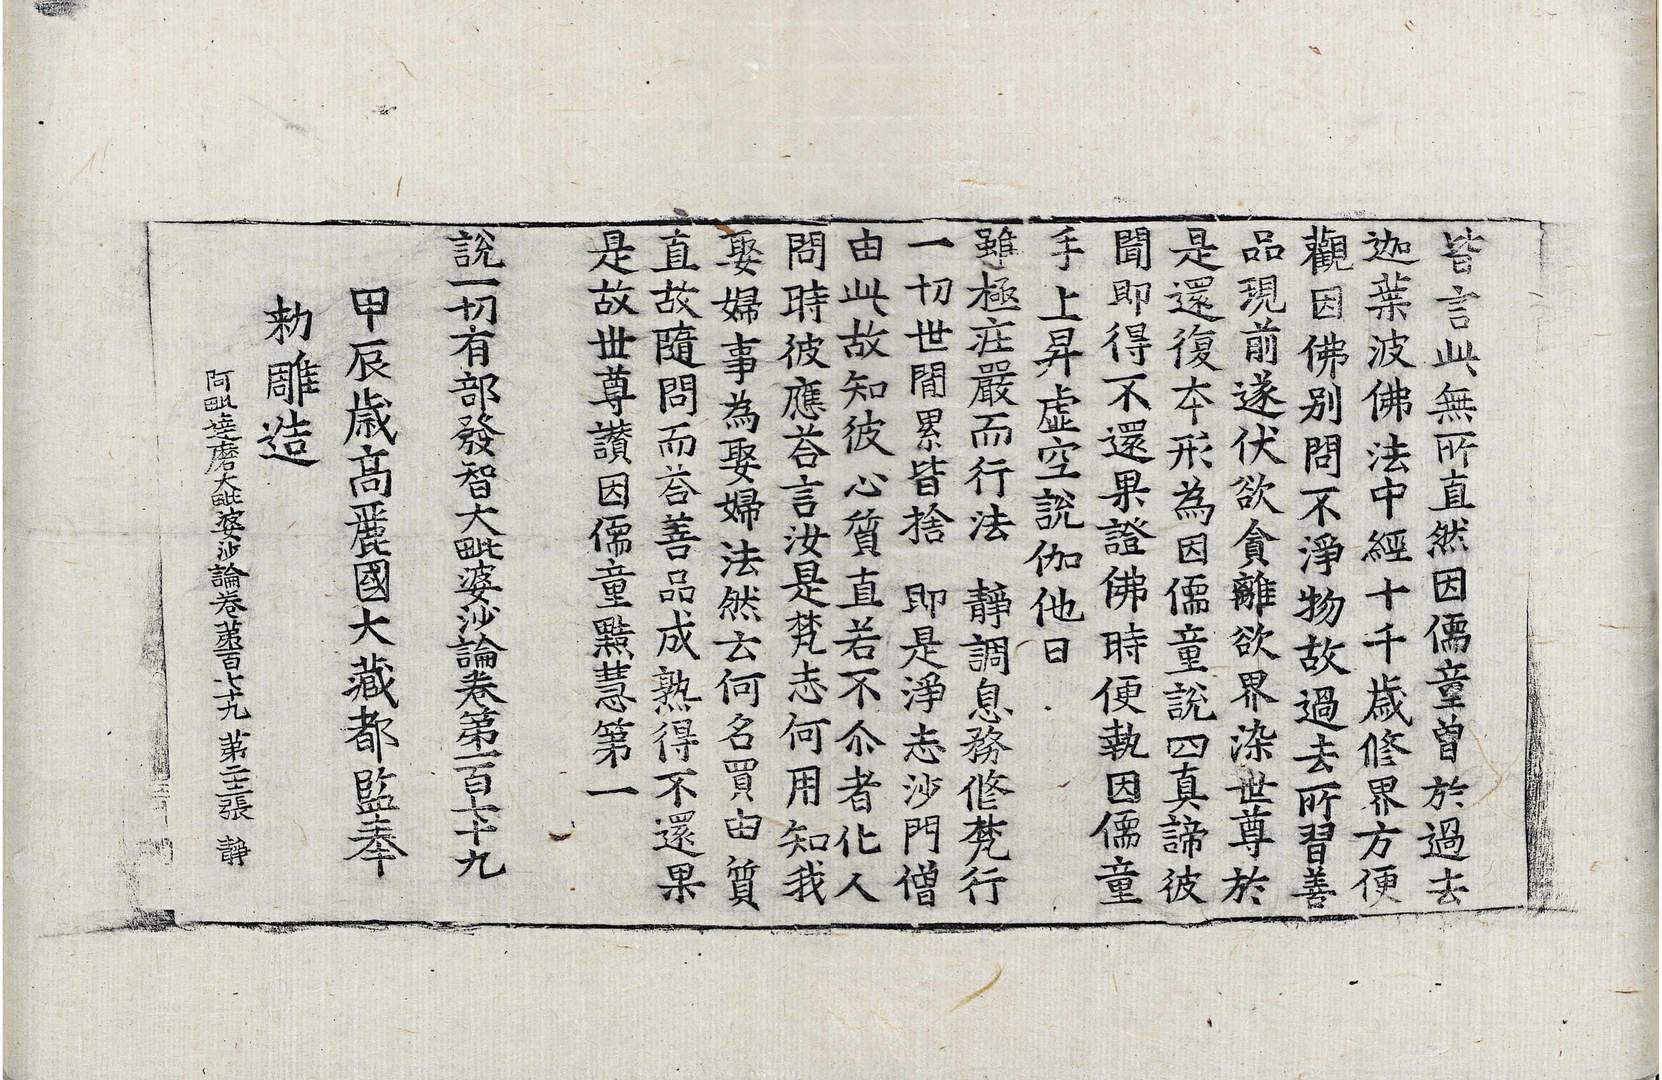 皆言此無所直然因儒童曾於過去
迦葉波佛法中經十千歲修界方便
觀因佛別問不淨物故過去所習善
品現前遂伏欲貪離欲界染世尊於
是還復本形為因儒童說四真諦彼
聞即得不還果證佛時便執因儒童
手上昇虛空說伽他曰
雖極莊嚴而行法　靜調息務修梵行
一切世間累皆捨　即是淨志沙門僧
由此故知彼心質直若不尒者化人
問時彼應荅言汝是梵志何用知我
娶婦事為娶婦法然去何名買由質
直故隨問而荅善品成熟得不還果
是故世尊讚因儒童黠慧第一
說一切有部發智大毗婆沙論卷第一百七十九
甲辰歲高麗國大藏都監奉
勅雕造
阿毗達磨大毗婆沙論卷第百七九　第二十三張　靜